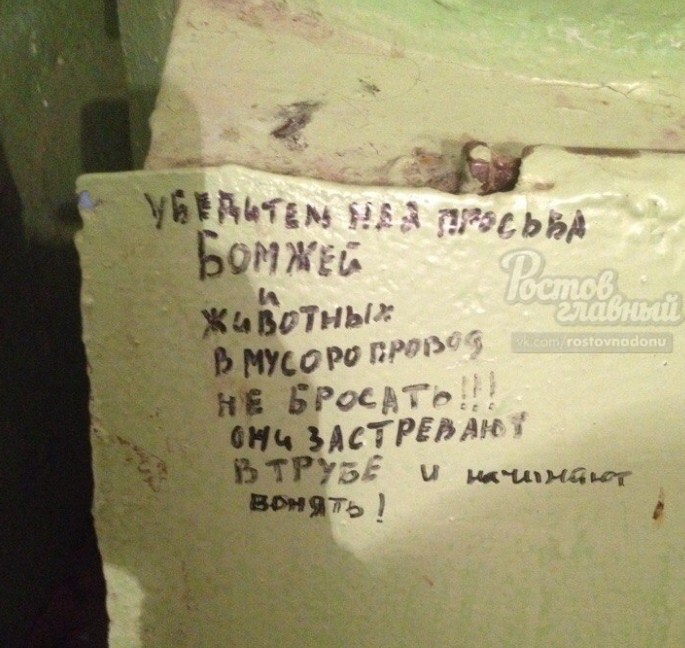 УБЕДИТЕЛЬНАЯ ПРОСЬБА
БОМЖЕЙ
И
ЖИВОТНЫХ
В МУСОРОПРОВОД
НЕ БРОСАТЬ!!!
ОНИ ЗАСТРЕВАЮТ
В ТРУБЕ И начинают
ВОНЯТЬ!
Ростов
главный
vk.com/rostovnadonu